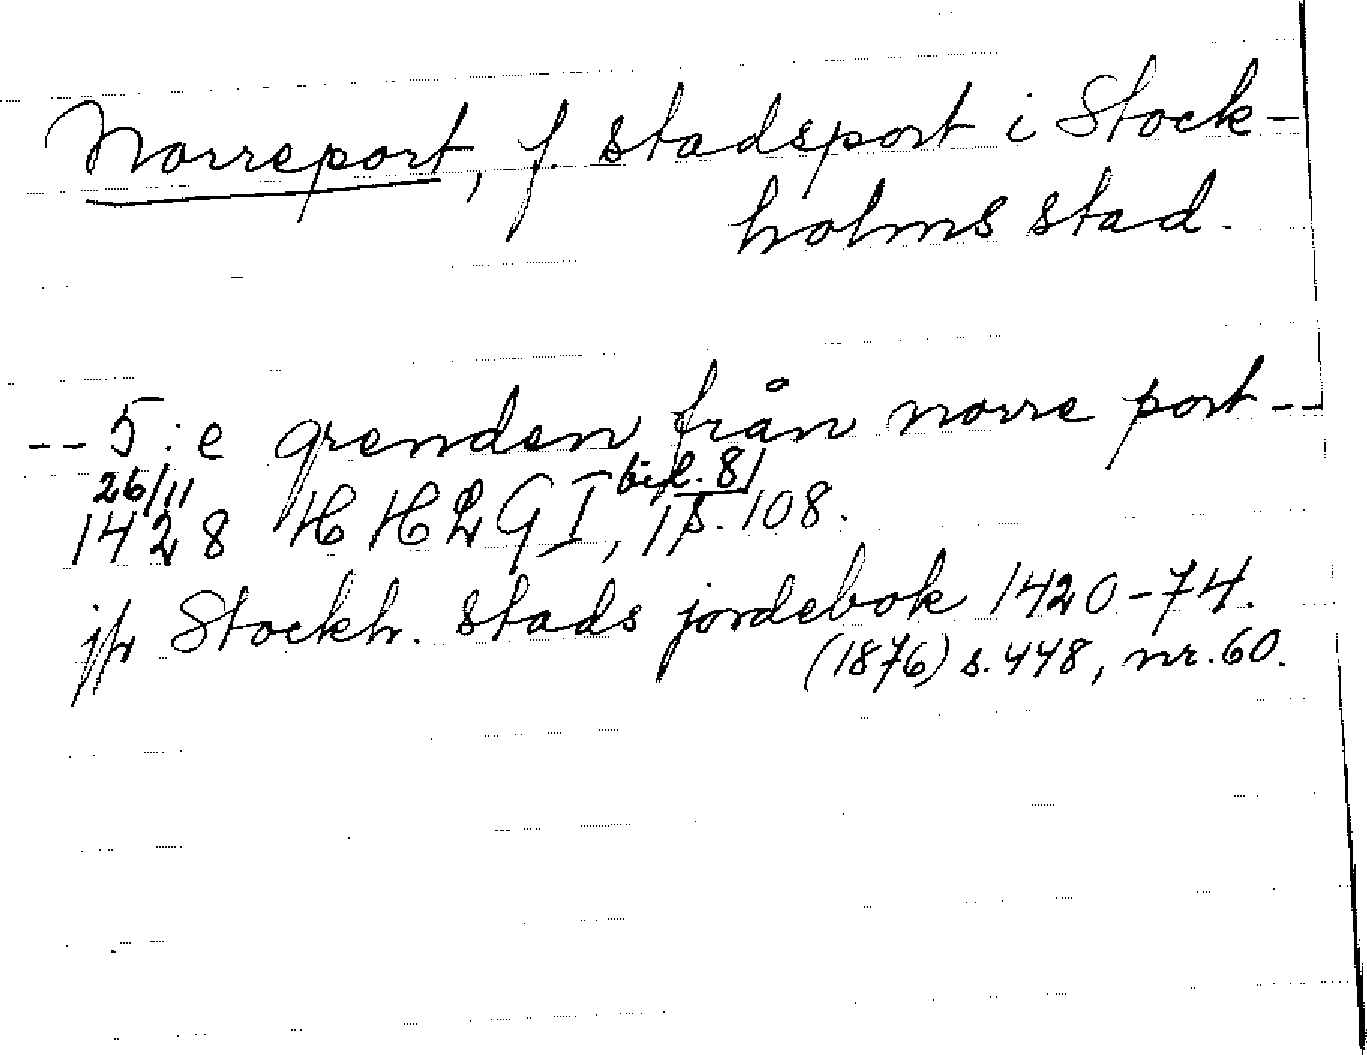 Norreport, f. stadsport i Stock-
holms stad.
-- 5:e grenden från norre port --
26/11 bil. 8
1428 HHLGI, 1, s. 108.
jfr Stockh. stads jordebok 1420-74.
(1876) s. 448, nr. 60.